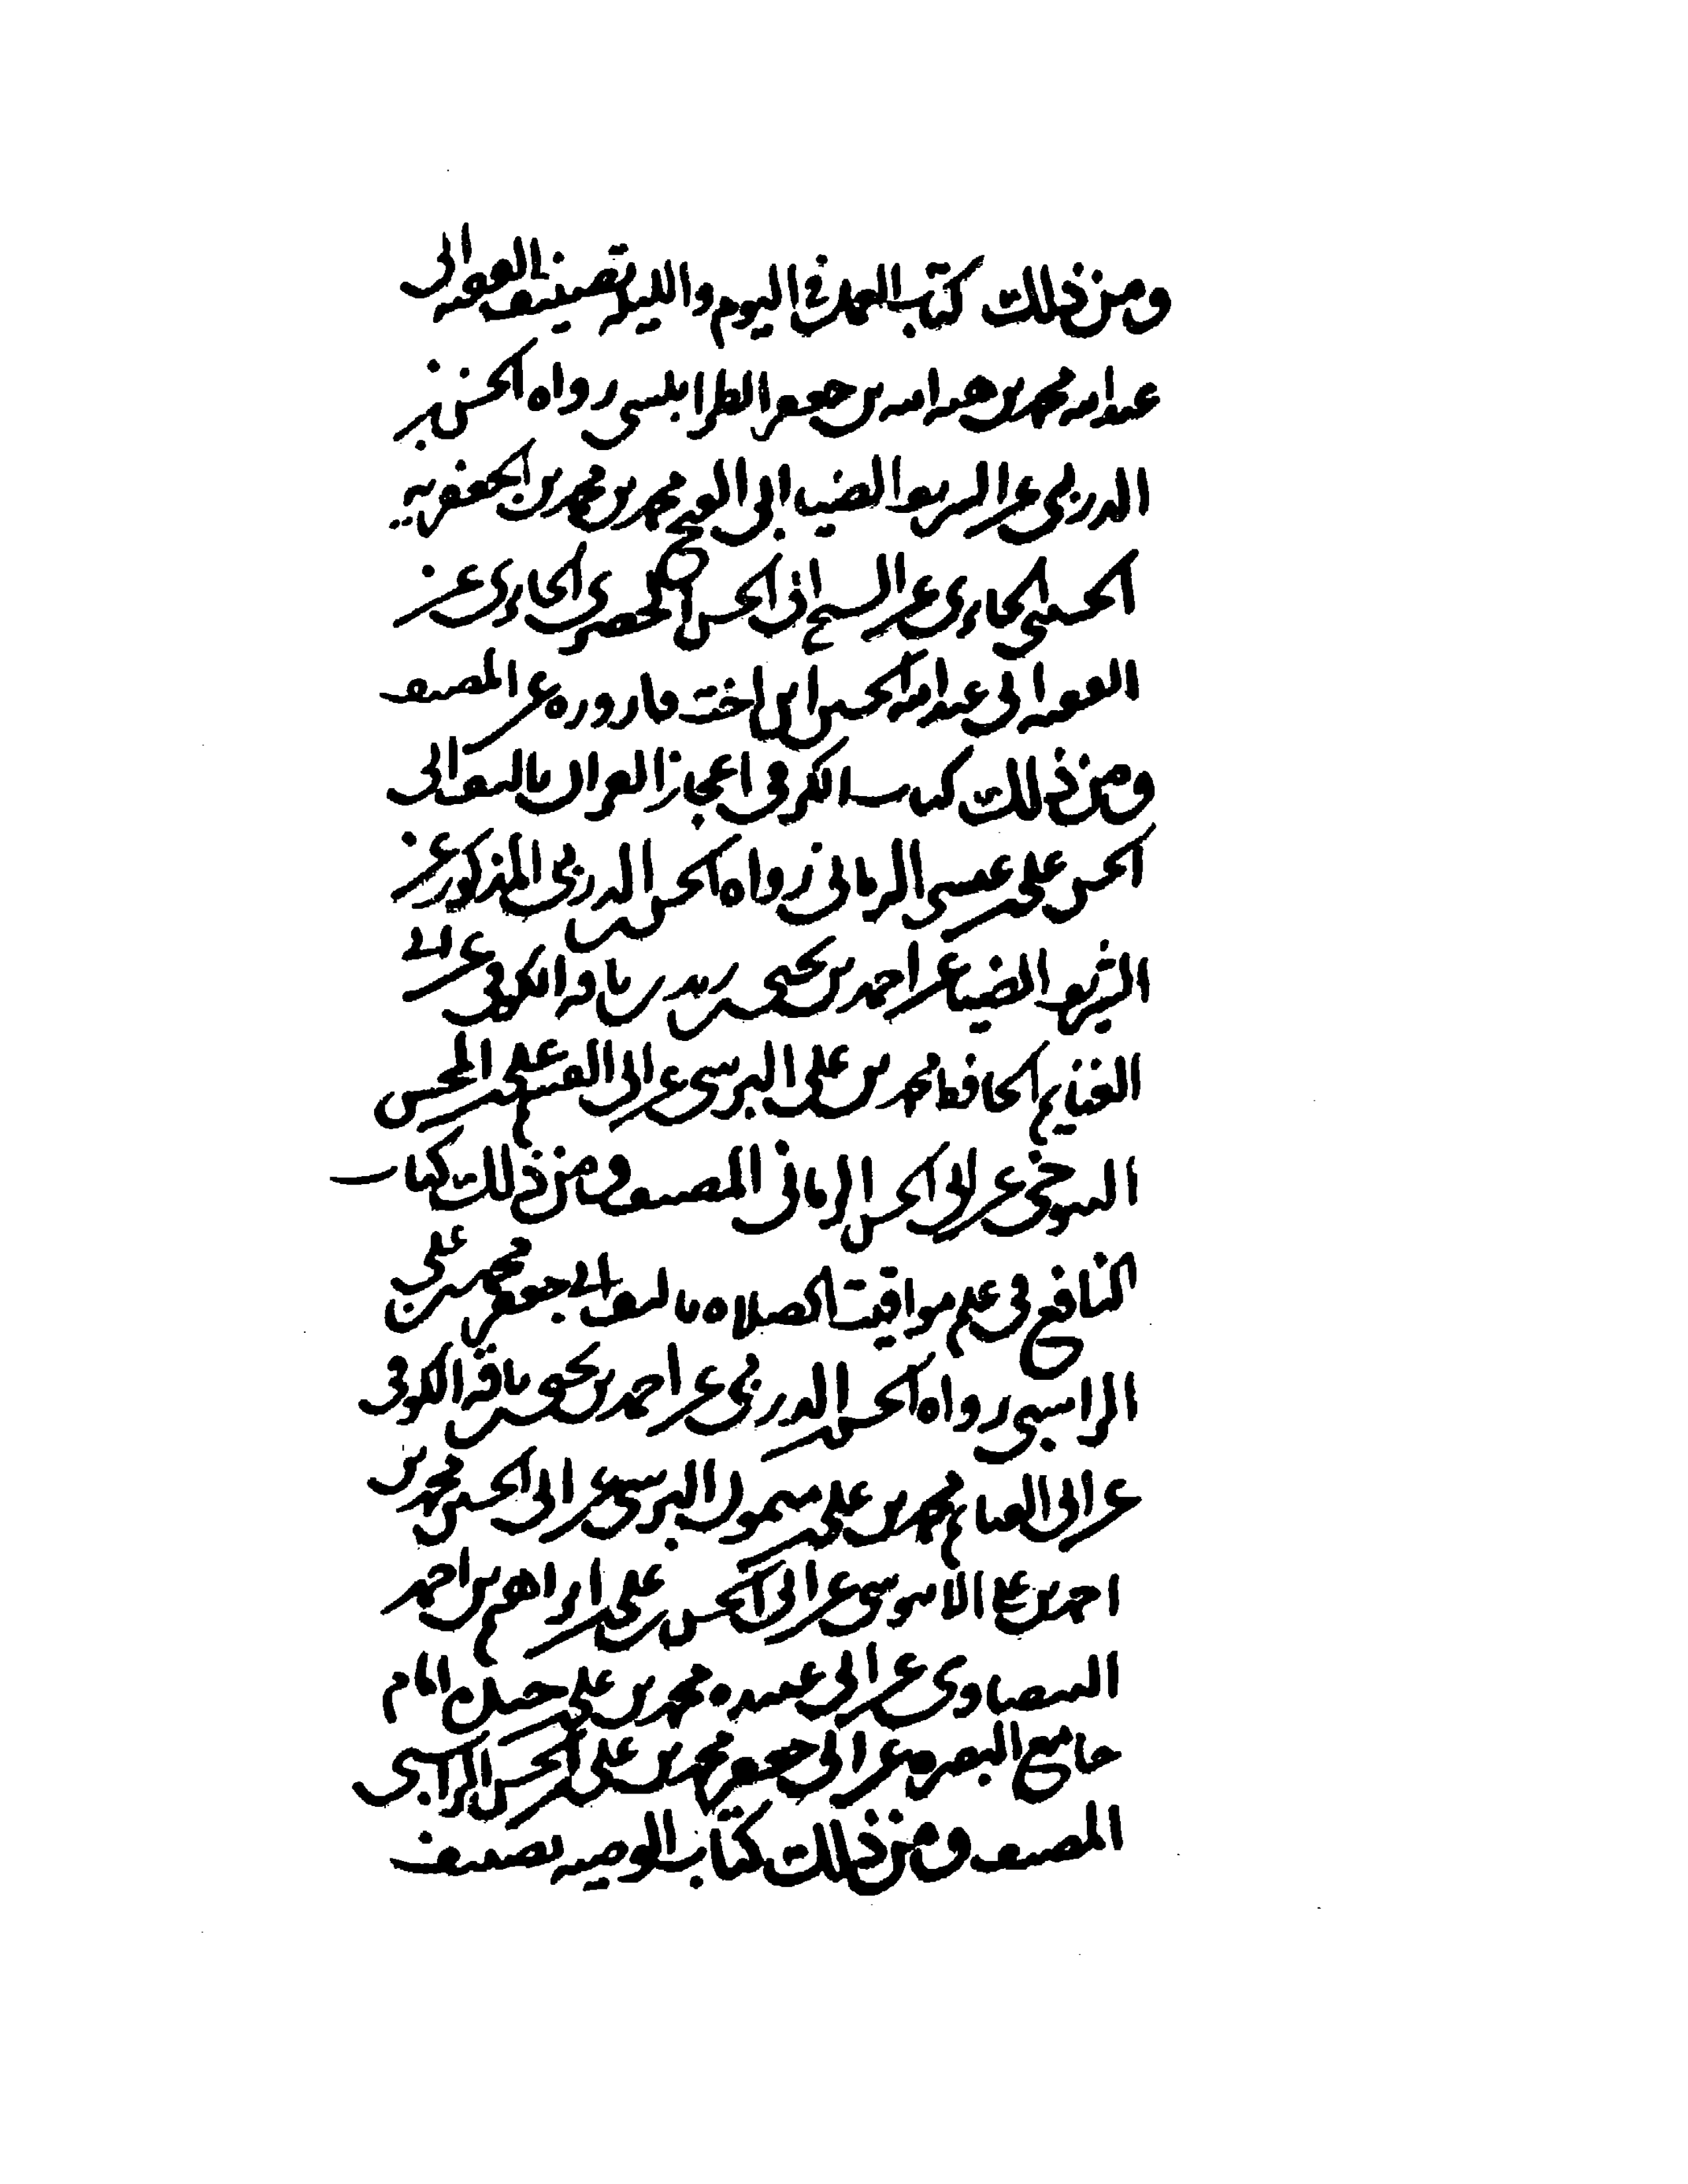 ومن ذلك كتاب العمل في اليوم والليله تصنيف الفقيه ابى
عبد الله محمد بن هبه الله بن جعفر الطرابلسى رواه الحسن بن
الدربى عن الشريف الضيا ابى الفتح محمد بن محمد بن الجعفريه
الحسنى الحايرى عن الشيخ ابى الحسن الحايرى عن
الفقيه ابى عبد الله الحسين ابن اخت قاروره عن المصنف
ومن ذلك كتاب فى اعجاز القران تاليف ابى
الحسن على بن عيسى الرمانى رواه الحسن بن الدربى المذكور عن
الشريف الضيا عن احمد بن يحيى بن زيد بن ناقه الكوفى عن ابى
الغنايم الحافظ محمد بن على النرسى عن ابى القسم على بن المحسن
التنوخى عن ابى الحسن الرمانى المصنف ومن ذلك كتاب
النافع فى علم مواقيت الصلاه تاليف ابى جعفر محمد بن على
الراسبى رواه الحسن بن الدربى عن احمد بن يحيى بن ناقه الكوفى
عن ابى الغنايم محمد بن على بن ميمون النرسى عن ابى الحسن محمد بن
احمد بن على عن ابى الحسن على بن ابراهيم بن احمد
البيضاوى عن ابى عبيده محمد بن على بن امام
جامع البصره عن ابى جعفر محمد بن على بن الحسن الراسبى
المصنف ومن ذلك كتاب الوصيه تصنيف